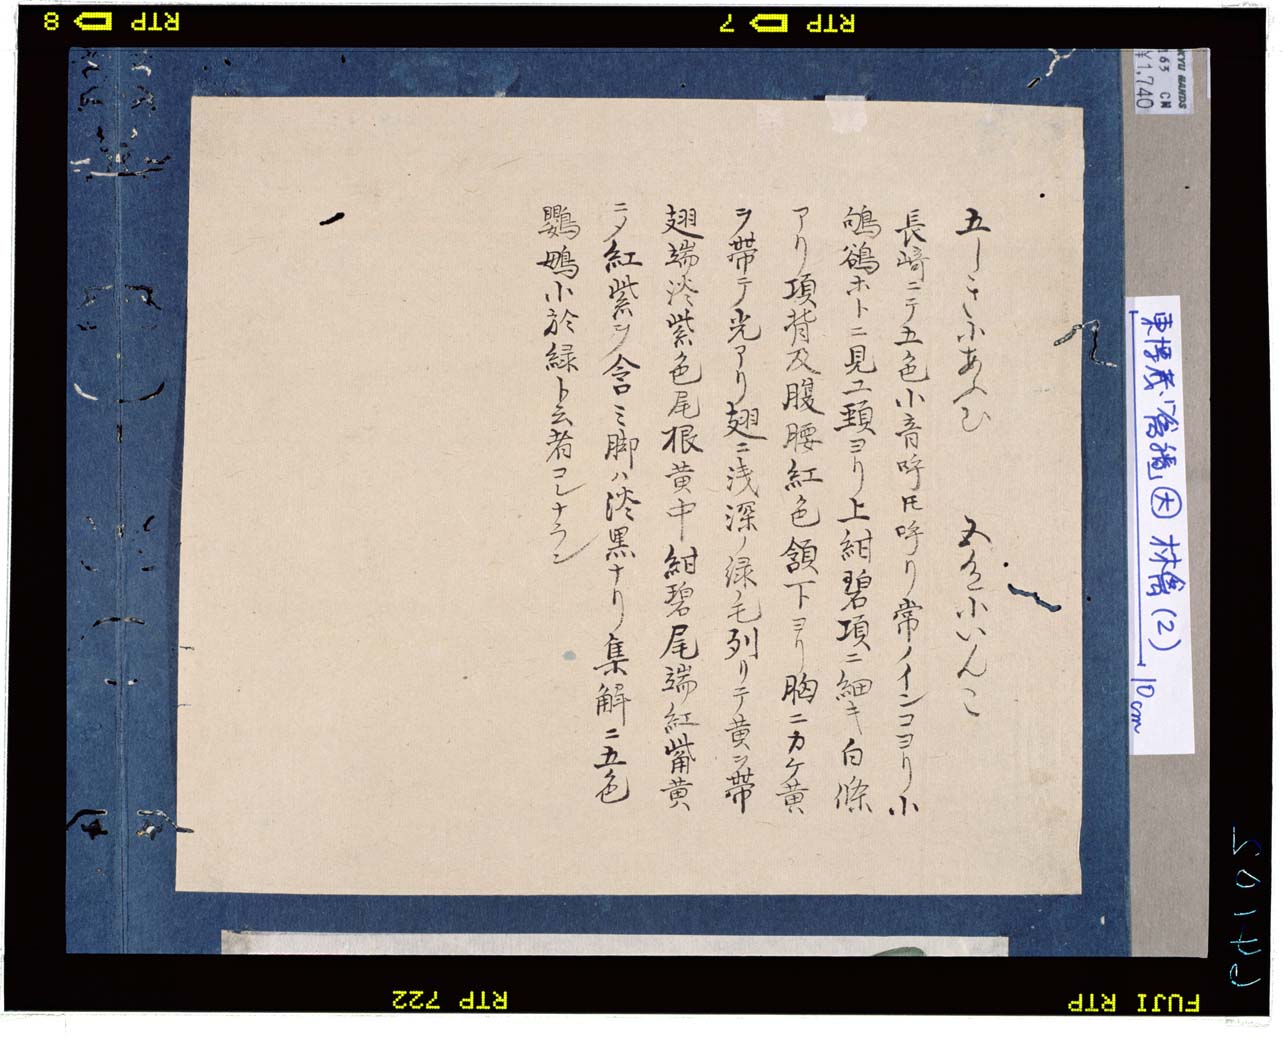 五しき小あふむ　五色小いんこ
長﨑ニテ五色小音呼𪜈呼リ常ノインコヨリ小
鴝鵒ホトニ見ユ頸ヨリ上紺碧項ニ細キ白條
アリ項背及腹腰紅色頷下ヨリ胸ニカケ黄
ヲ帯テ光アリ翅ニ浅深ノ緑毛列リテ黄ヲ帯
翅端淡紫色尾根黄中紺碧尾端紅觜黄
ニ〆紅紫ヲ含ミ脚ハ淡黒ナリ集解ニ五色
鸚䳇小於緑ト云者コレナラン
東博蔵「禽譜」㊅ 林禽(2)
10cm
KYU HANDS
163 CN
¥1,740
8 RTP
7 RTP
RTP 722
FUJI RTP